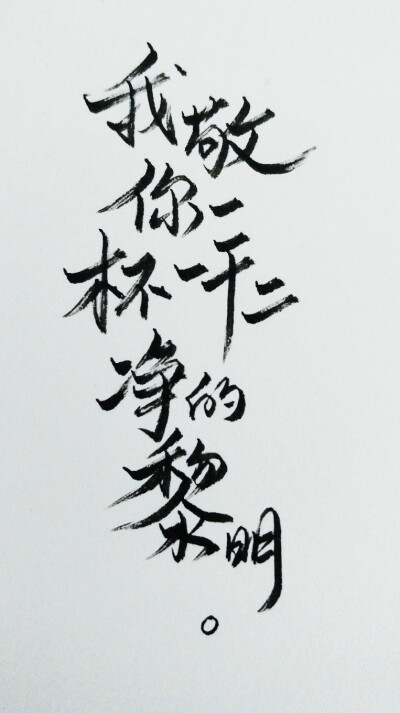 我敬
你一
杯一干二
净的
黎明
。